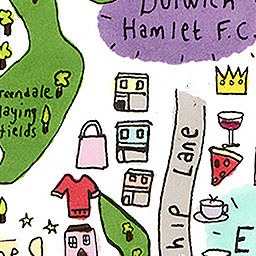 Dulwich
Hamlet F.C.
Greendale
Playing
Fields
hip Lane
E